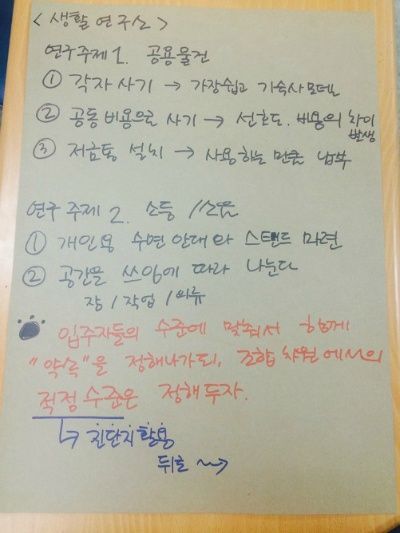 < 생활 연구소 >
연구주제 1. 공용물건
① 각자 사기 → 가장쉽고 기숙사모델
② 공동 비용으로 사기 → 선호도. 비용의 차이
발생
③ 저금통 설치 → 사용하는 만큼 납부
연구 주제 2. 소등 / 소음
① 개인용 수면 안대와 스탠드 마련
② 공간을 쓰임에 따라 나눈다
잠 / 작업 /
입주자들의 수준에 맞춰서 함께
"약속"을 정해나가되, 조합 차원에서의
적정 수준은 정해 두자.
↳ 진단지 활용
뒤로 ~→